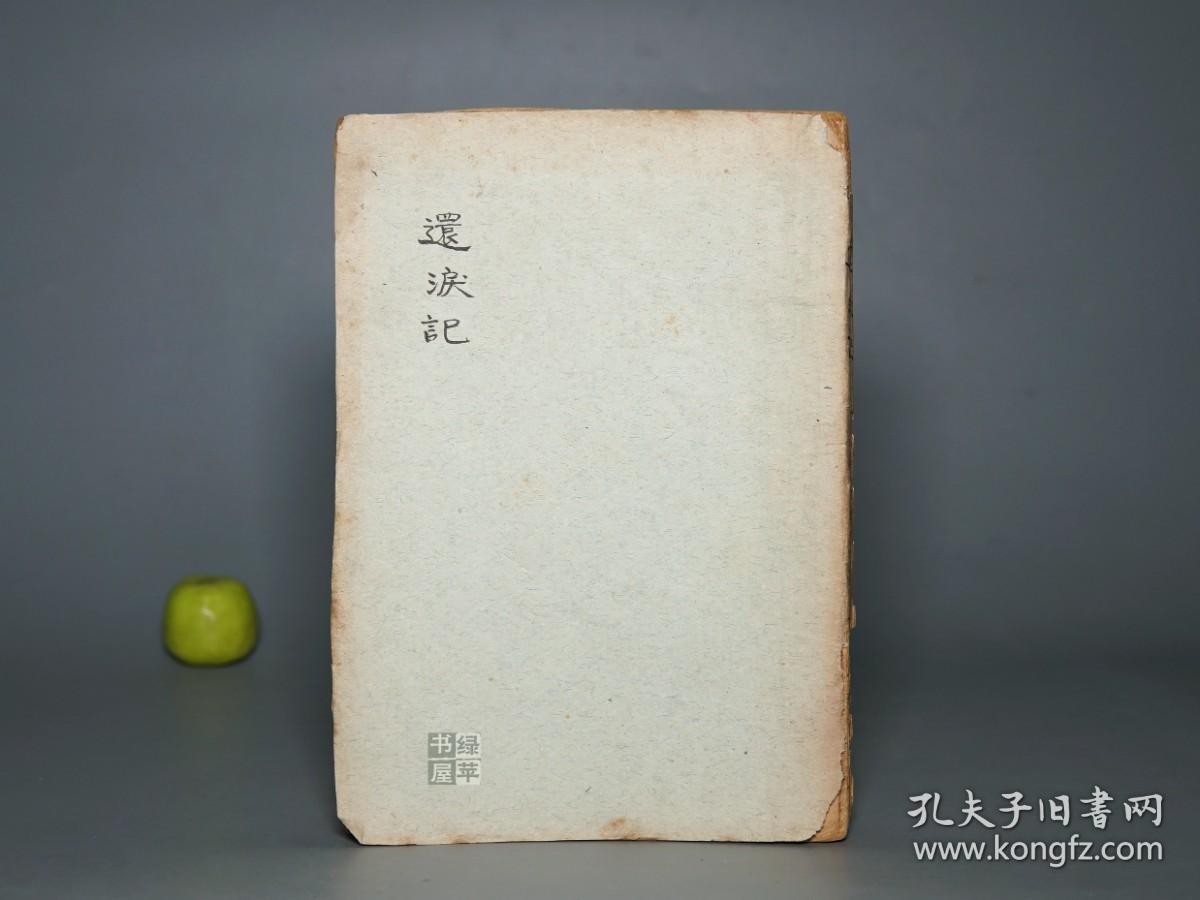 還淚記
绿苹
书屋
孔夫子旧書网
www.kongfz.com